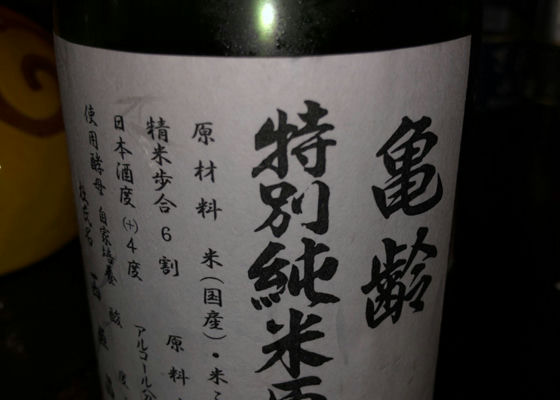 亀齢
特別純米原
原材料 米(国産)・米こ
精米歩合 6割 原料
日本酒度 (+)4度 酸度
使用酵母 自家培養 アルコール分
杜氏名